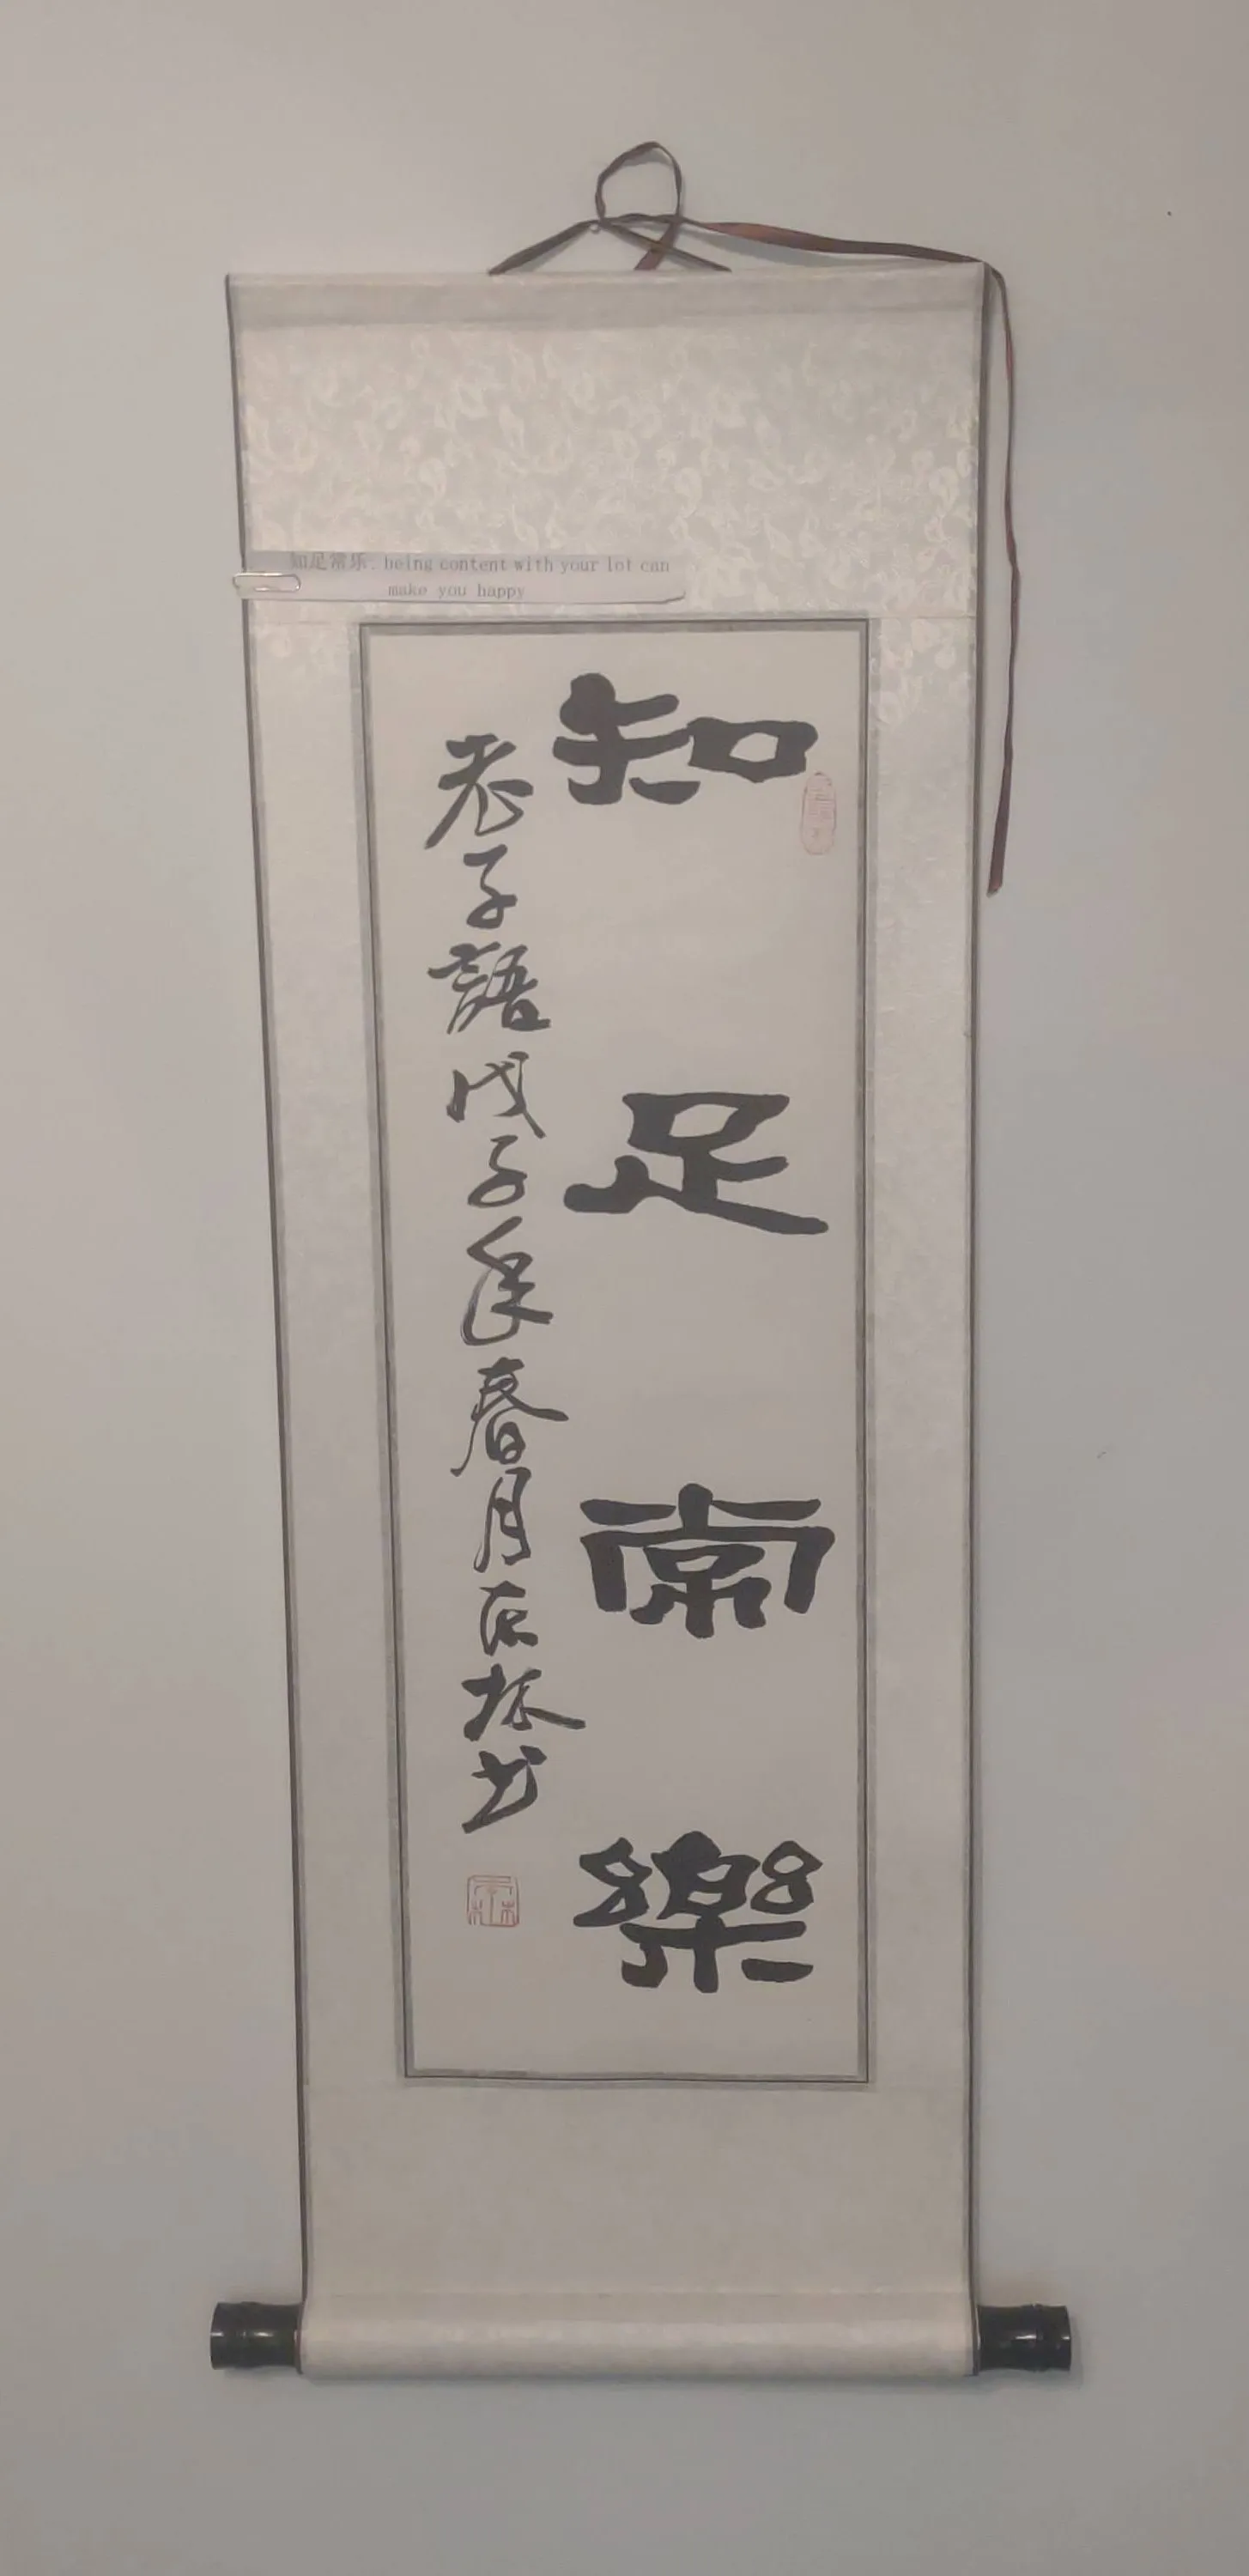 知足常乐: being content with your lot can
make you happy
知足常樂
老子語戊子年春月宗林书